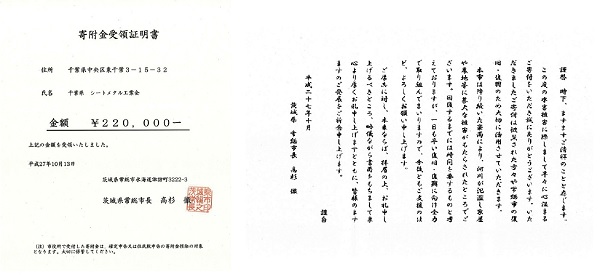 寄附金受領証明書
住所 千葉県中央区東千葉3-15-32
氏名 千葉県 シートメタル工業会
金額 ￥220,000―
上記の金額を受領いたしました。
平成27年10月13日
茨城県常総市水海道諏訪町3222-3
茨城県常総市長 高杉 徹
(注) 市役所で受付した寄附金は、確定申告又は住民税申告の寄附金控除の対象
となります。大切に保管してください。
謹啓 時下、ますますご清祥のことと存じます。
この度の水害被害に際しまして早々に心温まる
ご寄付をいただき誠にありがとうございます。いた
だきましたご寄付は被災された方々や常総市の復
旧・復興のため大切に活用させていただきます。
本市は降り続いた豪雨により、河川が氾濫し家屋
や農地等に甚大な被害がもたらされたところでご
ざいます。回復するまでには時間を要するものと考
えておりますが、一日も早い復旧・復興へ向け全力
で取り組んでまいりますので、今後ともご支援のほ
ど、よろしくお願い申し上げます。
ご厚志に対し、本来ならば、拝眉の上、お礼申し
上げるべきところ、略儀ながら書面をもちまして衷
心より厚くお礼申し上げますとともに、皆様のます
ますのご発展をご祈念申し上げます。
謹白
平成二十七年十月
茨城県 常総市長 高杉 徹